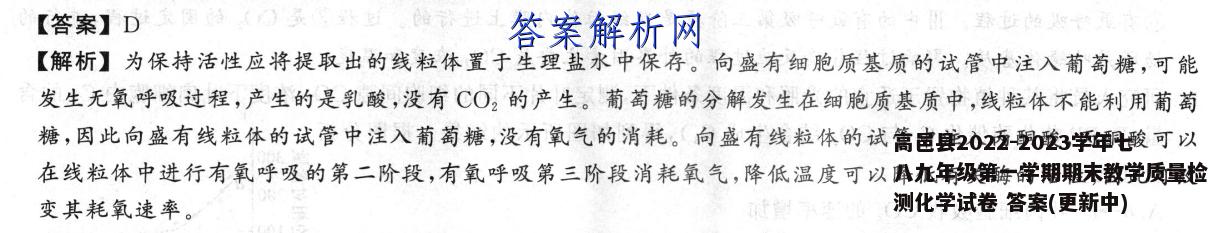 【答案】D
答案解析网
【解析】为保持活性应将提取出的线粒体置于生理盐水中保存。向盛有细胞质基质的试管中注入葡萄糖,可能
发生无氧呼吸过程,产生的是乳酸,没有CO₂的产生。葡萄糖的分解发生在细胞质基质中,线粒体不能利用葡萄
糖,因此向盛有线粒体的试管中注入葡萄糖,没有氧气的消耗。向盛有线粒体的试 可以
高邑县2022-2023学年七
在线粒体中进行有氧呼吸的第二阶段,有氧呼吸第三阶段消耗氧气,降低温度可以
八九年级第一学期期末教学质量检
变其耗氧速率。
测化学试卷 答案(更新中)